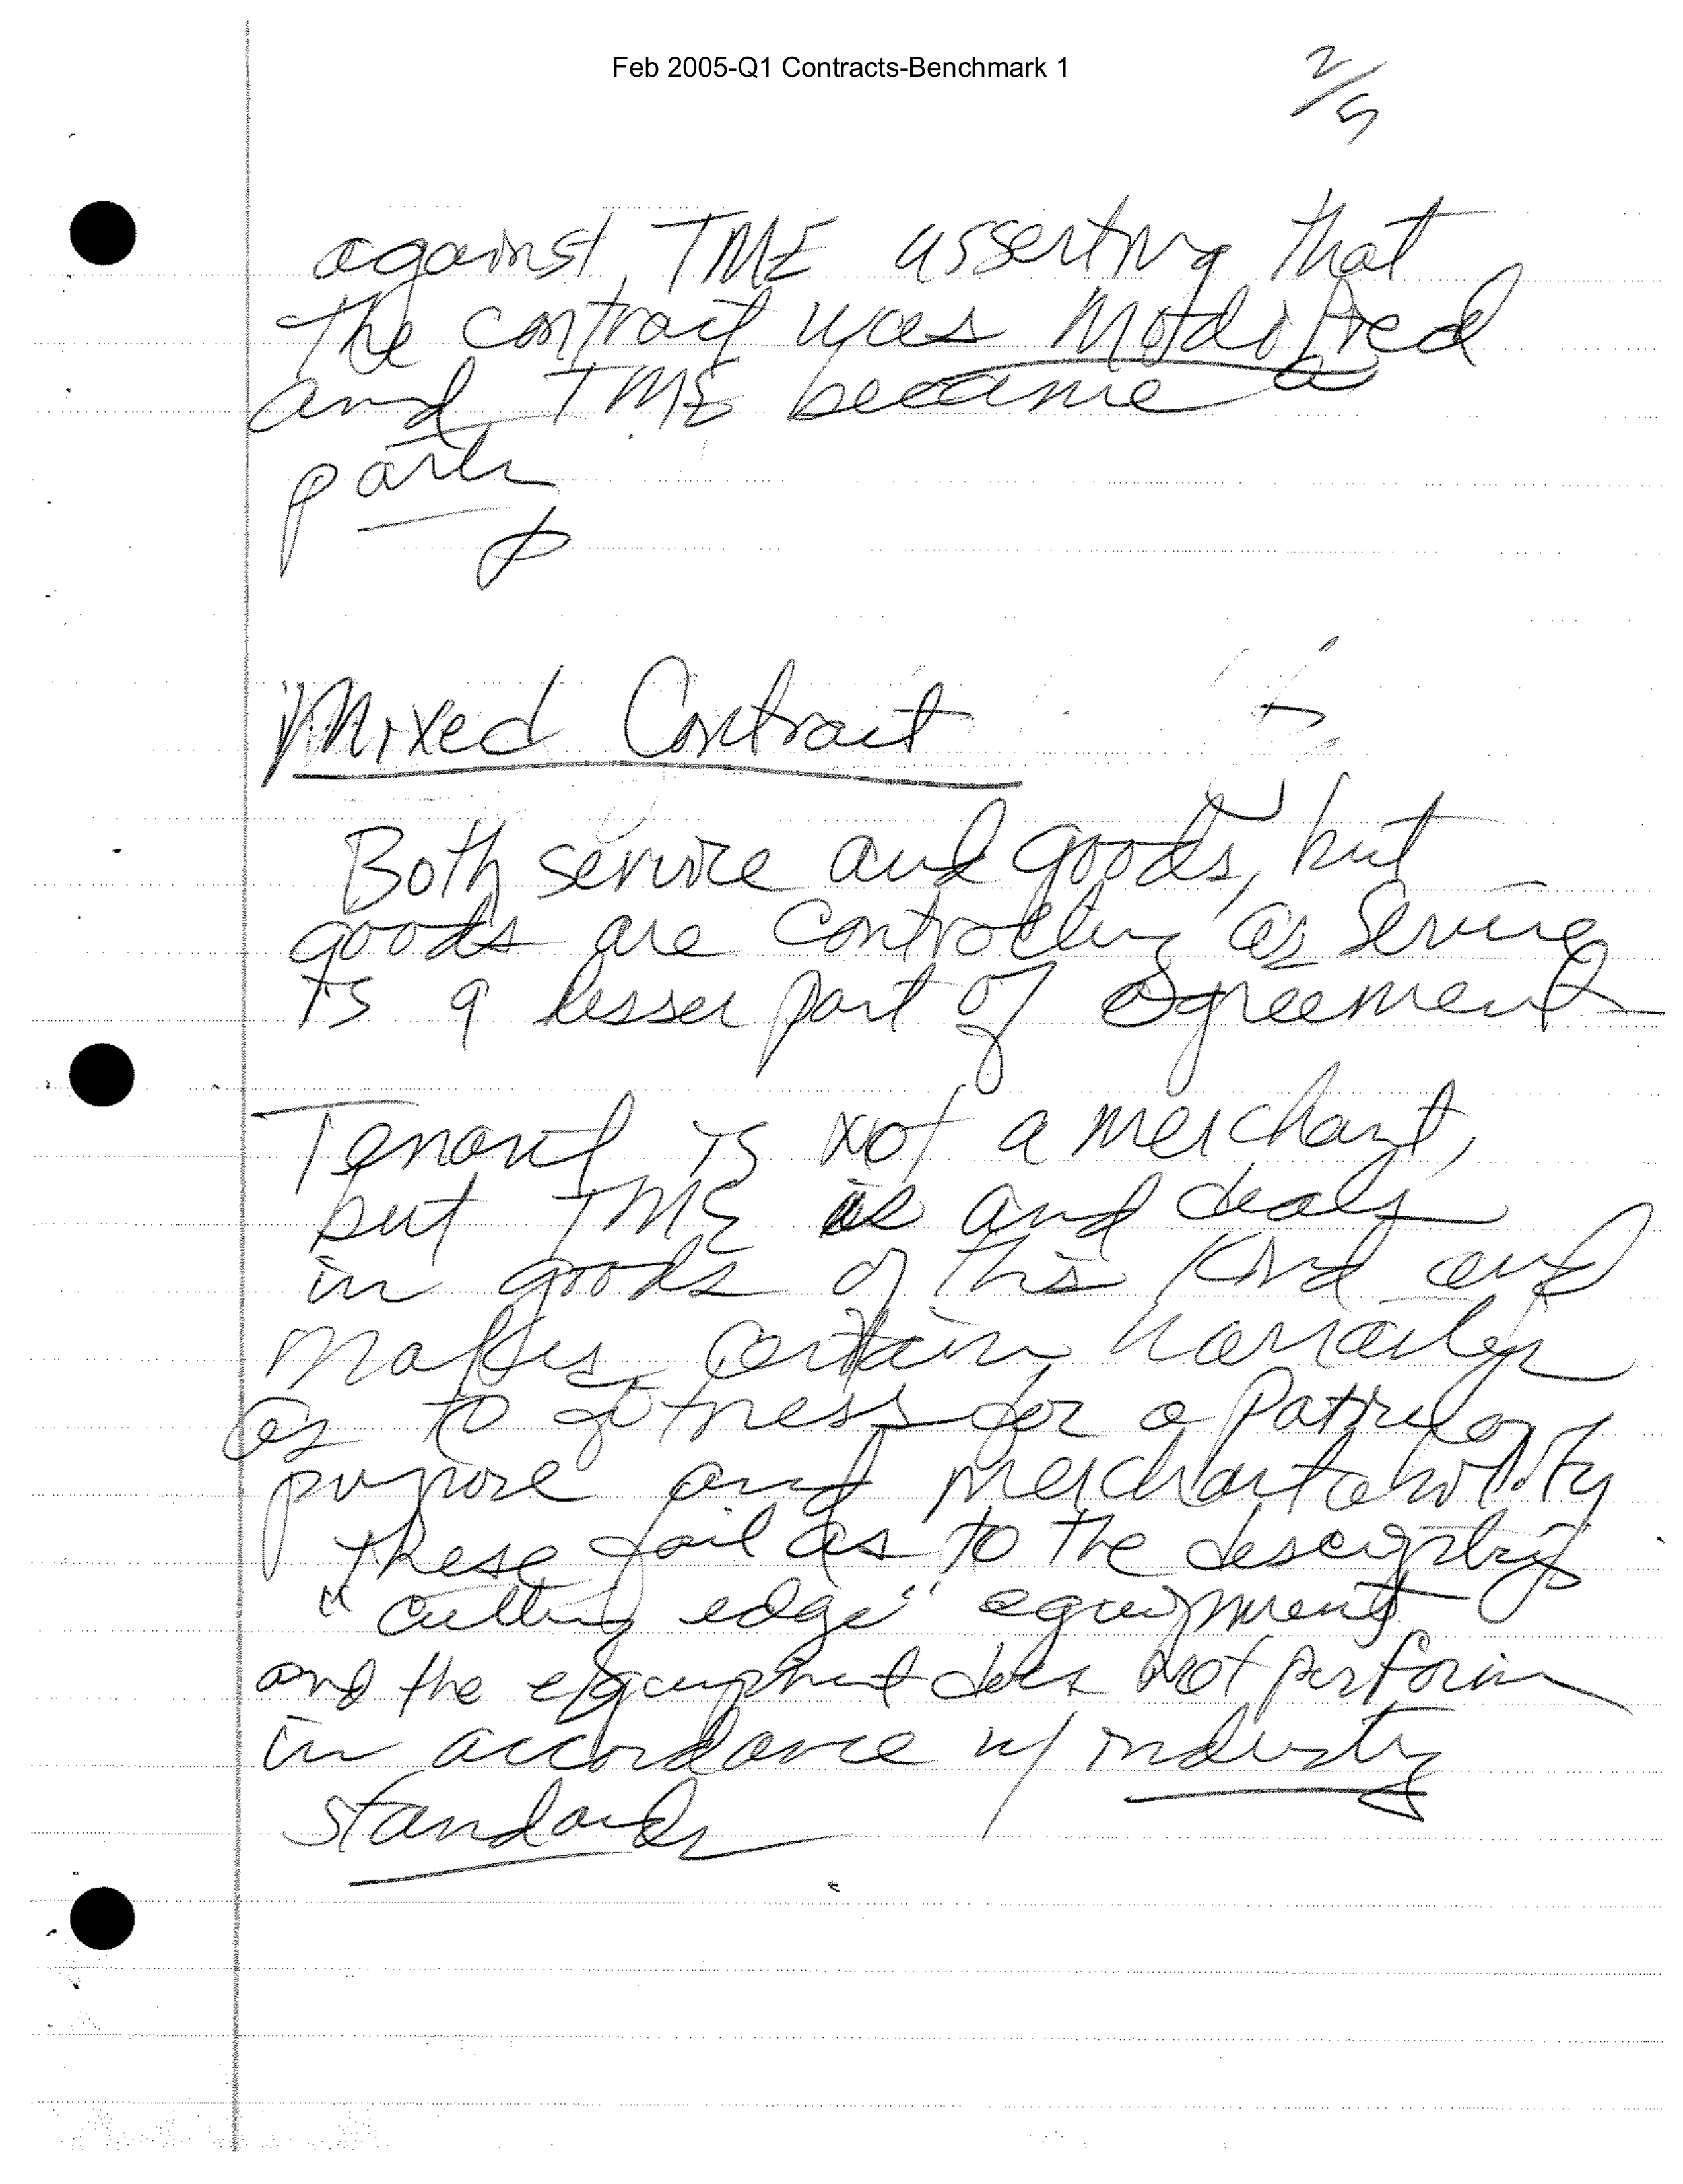 Feb 2005-Q1 Contracts-Benchmark 1
2/5
against TME asserting that
the contract was Modified
and TME became a
party
Mixed Contract
Both service and goods, but
goods are controlling as service
is a lesser part of agreement
Tenant is not a merchant,
but TME is and deals
in goods of this kind and
makes certain warranties
as to fitness for a
purpose and merchantability
these fail as to the description
"cutting edge" equipment
and the equipment does not perform
in accordance w/ industry
standards